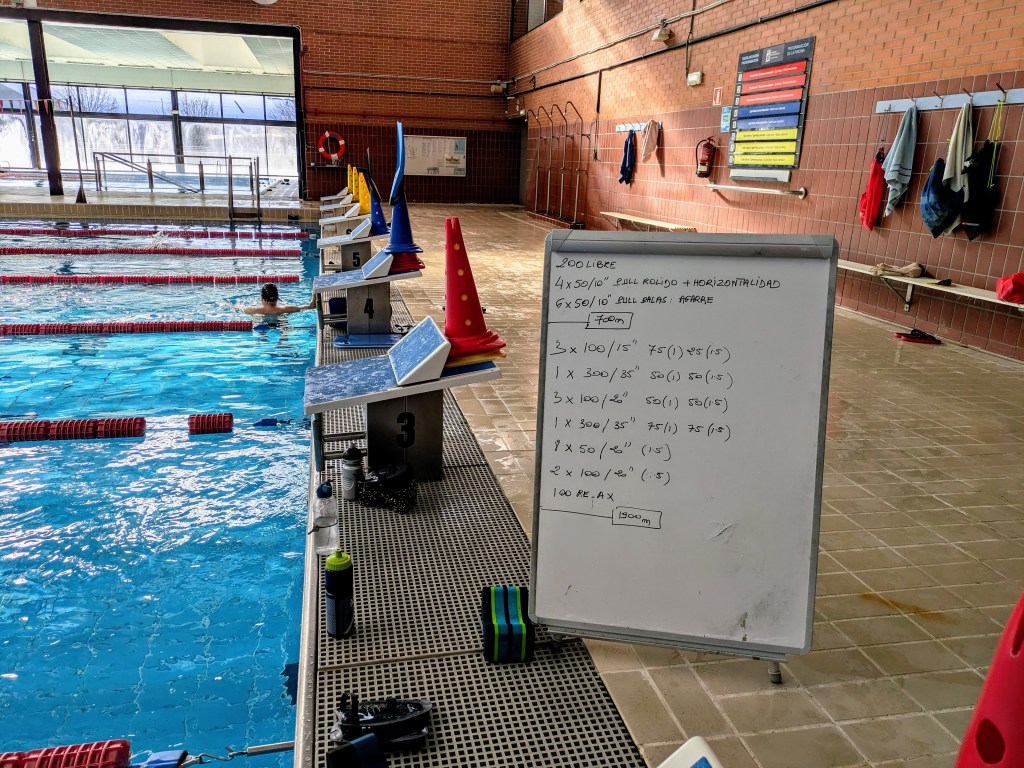 200 LIBRE
4 x 50/10" PULL ROLIDO + HORIZONTALIDAD
6 x 50/10" PULL PALAS: AGARRE
700m
3 x 100/15" 75(1) 25(1.5)
1 x 300/35" 50(1) 50(1.5)
3 x 100/20" 50(1) 50(1.5)
1 x 300/35" 75(1) 75(1.5)
8 x 50/20" (1.5)
2 x 100/20" (1.5)
100 RELAX
1900m
5
4
3